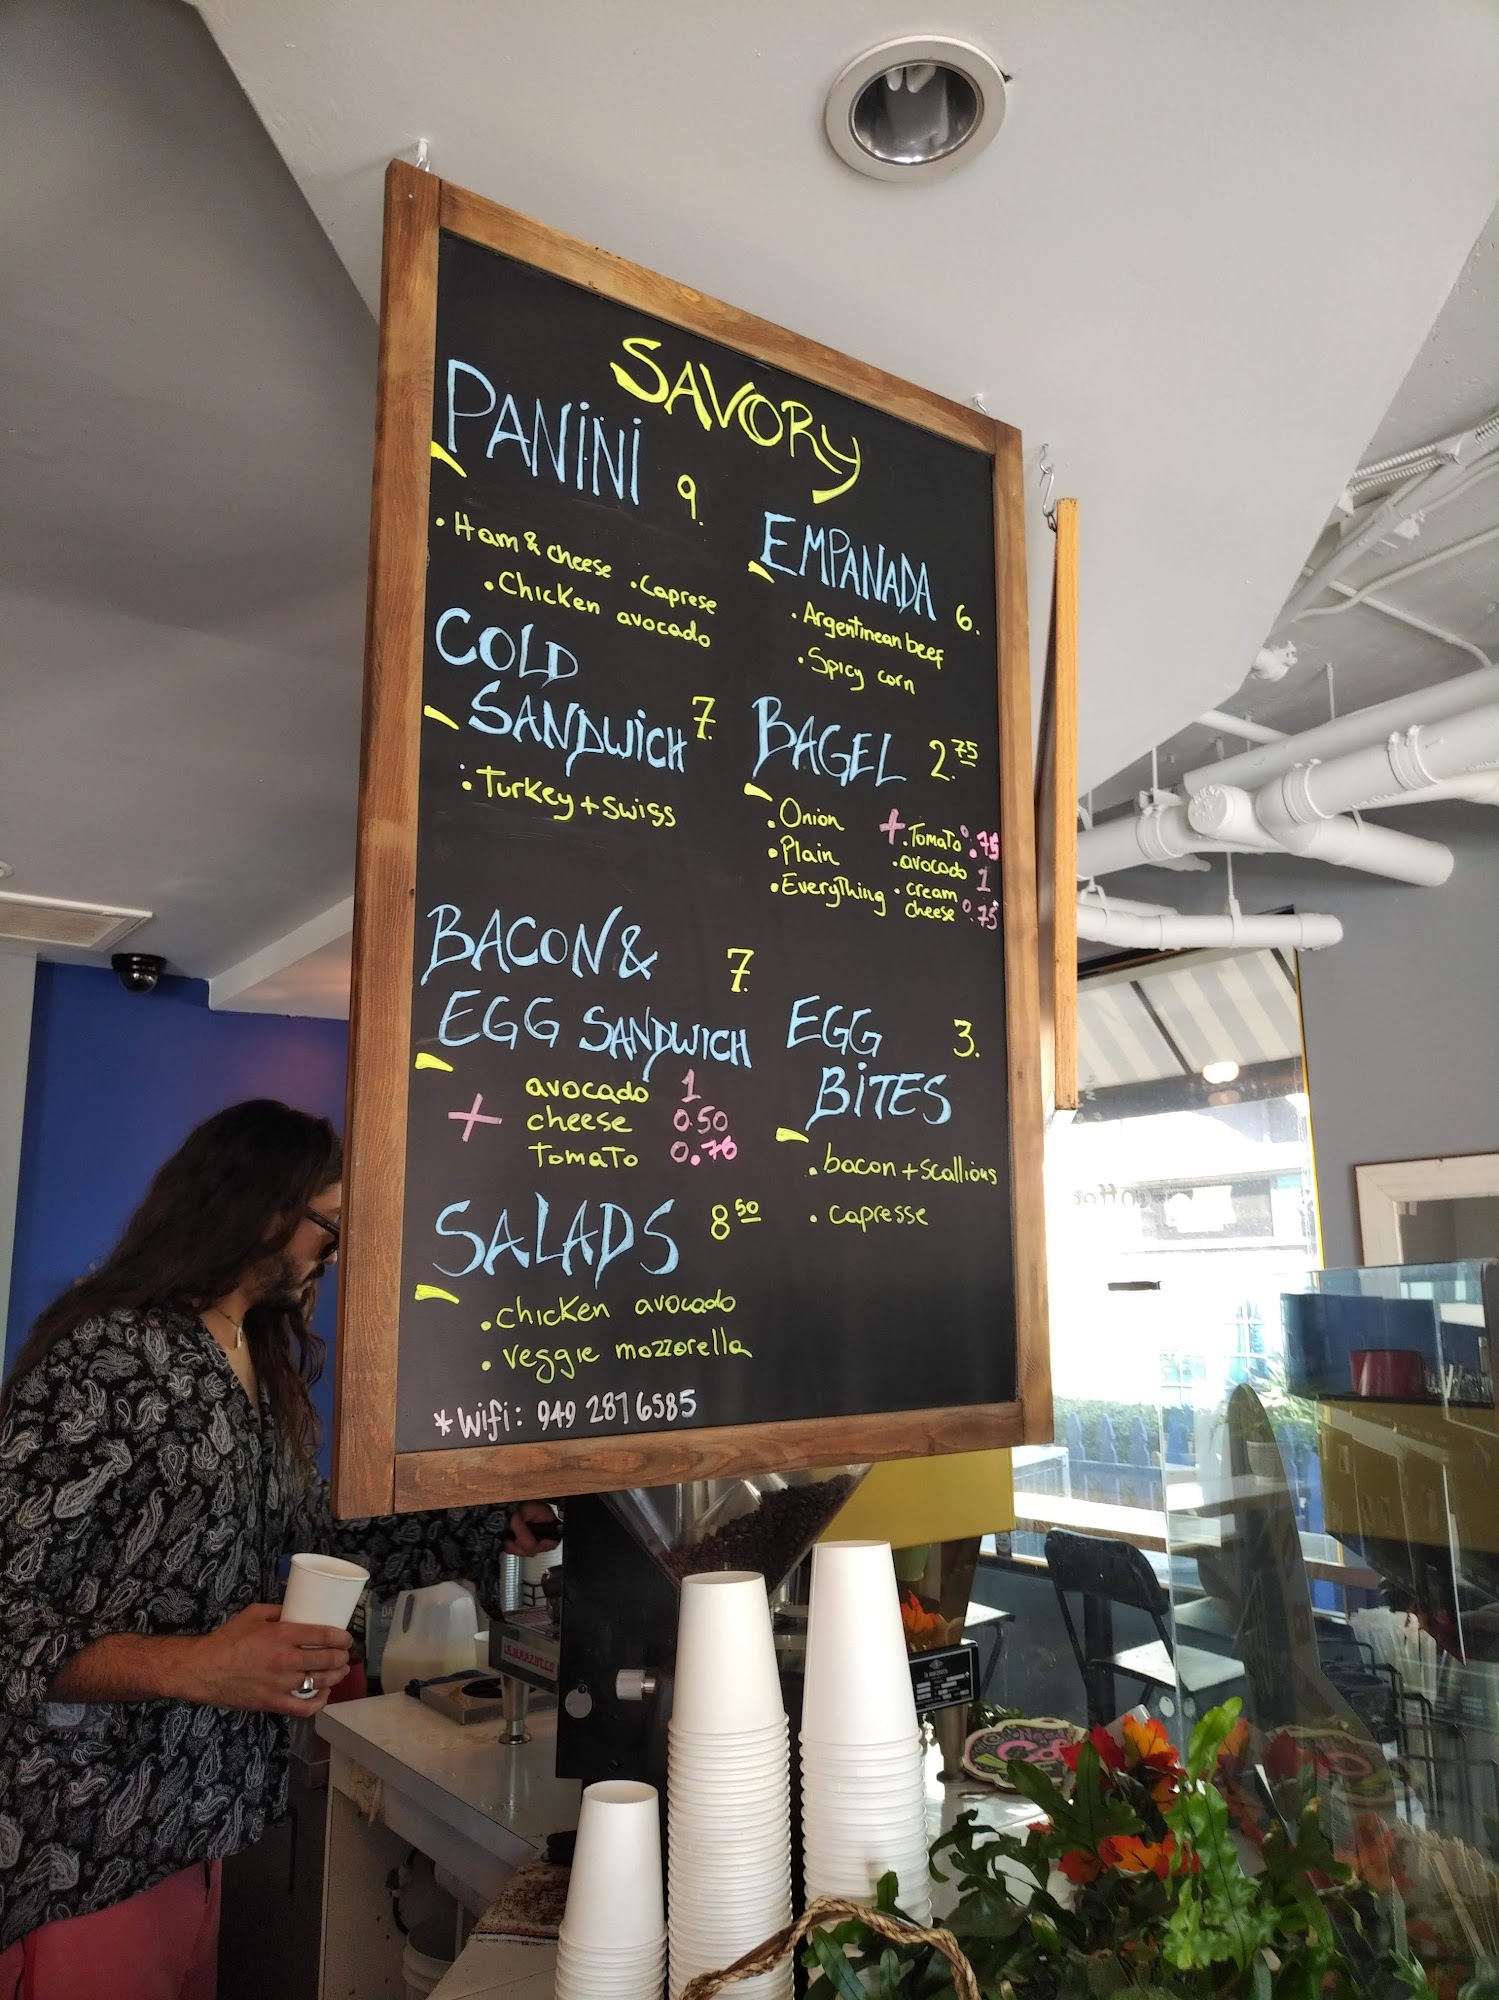 SAVORY
PANINI 9.
• Ham & cheese • Caprese
• Chicken avocado
COLD
SANDWICH 7.
• Turkey + swiss
BACON &
EGG SANDWICH 7.
+ avocado 1
cheese 0.50
Tomato 0.70
SALADS 8 50
• chicken avocado
• veggie mozzorella
* Wifi: 949 287 6585
EMPANADA 6.
• Argentinean beef
• Spicy corn
BAGEL 2.75
• Onion
• Plain
• Everything
+ • Tomato 0.75
• avocado 1
• cream
cheese 0.75
EGG 3.
BITES
• bacon + scallions
• capresse